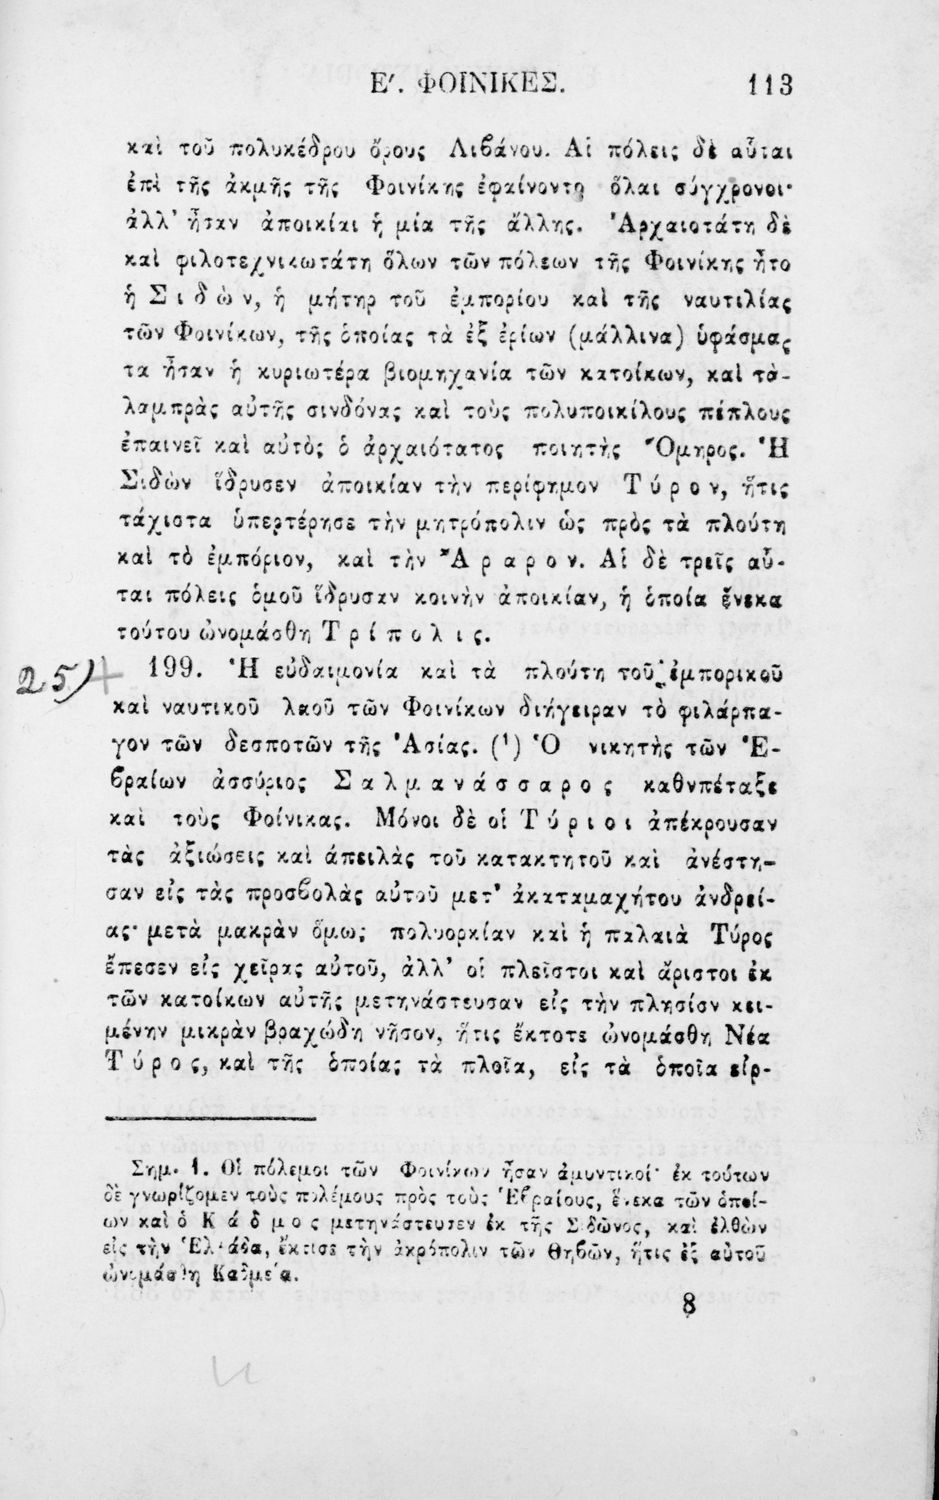 Ε′. ΦΟΙΝΙΚΕΣ. 113
καὶ τοῦ πολυκέδρου ὄρους Λιβάνου. Αἱ πόλεις δὲ αὗται
ἐπὶ τῆς ἀκμῆς τῆς Φοινίκης ἐφαίνοντο ὅλαι σύγχρονοι·
ἀλλ' ἦσαν ἀποικίαι ἡ μία τῆς ἄλλης. Ἀρχαιοτάτη δὲ
καὶ φιλοτεχνικωτάτη ὅλων τῶν πόλεων τῆς Φοινίκης ἦτο
ἡ Σιδὼν, ἡ μήτηρ τοῦ ἐμπορίου καὶ τῆς ναυτιλίας
τῶν Φοινίκων, τῆς ὁποίας τὰ ἐξ ἐρίων (μάλλινα) ὑφάσμα-
τα ἦσαν ἡ κυριωτέρα βιομηχανία τῶν κατοίκων, καὶ τὰ-
λαμπρὰς αὐτῆς σινδόνας καὶ τοὺς πολυποικίλους πέπλους
ἐπαινεῖ καὶ αὐτὸς ὁ ἀρχαιότατος ποιητὴς Ὅμηρος. Ἡ
Σιδὼν ἵδρυσεν ἀποικίαν τὴν περίφημον Τύρον, ἥτις
τάχιστα ὑπερτέρησε τὴν μητρόπολιν ὡς πρὸς τὰ πλούτη
καὶ τὸ ἐμπόριον, καὶ τὴν Ἄραρον. Αἱ δὲ τρεῖς αὗ-
ται πόλεις ὁμοῦ ἵδρυσαν κοινὴν ἀποικίαν, ἡ ὁποία ἕνεκα
τούτου ὠνομάσθη Τρίπολις.
25) 199. Ἡ εὐδαιμονία καὶ τὰ πλούτη τοῦ ἐμπορικοῦ
καὶ ναυτικοῦ λαοῦ τῶν Φοινίκων διήγειραν τὸ φιλάρπα-
γον τῶν δεσποτῶν τῆς Ἀσίας. (¹) Ὁ νικητὴς τῶν Ἑ-
βραίων ἀσσύριος Σαλμανάσσαρος καθυπέταξε
καὶ τοὺς Φοίνικας. Μόνοι δὲ οἱ Τύριοι ἀπέκρουσαν
τὰς ἀξιώσεις καὶ ἀπειλὰς τοῦ κατακτητοῦ καὶ ἀνέστη-
σαν εἰς τὰς προσβολὰς αὐτοῦ μετ' ἀκαταμαχήτου ἀνδρεί-
ας· μετὰ μακρὰν ὅμως πολυορκίαν καὶ ἡ παλαιὰ Τύρος
ἔπεσεν εἰς χεῖρας αὐτοῦ, ἀλλ' οἱ πλεῖστοι καὶ ἄριστοι ἐκ
τῶν κατοίκων αὐτῆς μετηνάστευσαν εἰς τὴν πλησίον κει-
μένην μικρὰν βραχώδη νῆσον, ἥτις ἔκτοτε ὠνομάσθη Νέα
Τύρος, καὶ τῆς ὁποίας τὰ πλοῖα, εἰς τὰ ὁποῖα εἰρ-
Σημ. 1. Οἱ πόλεμοι τῶν Φοινίκων ἦσαν ἀμυντικοί· ἐκ τούτων
δὲ γνωρίζομεν τοὺς πολέμους πρὸς τοὺς Ἑβραίους, ἕνεκα τῶν ὁποί-
ων καὶ ὁ Κάδμος μετηνάστευσεν ἐκ τῆς Σιδῶνος, καὶ ἐλθὼν
εἰς τὴν Ἑλλάδα, ἔκτισε τὴν ἀκρόπολιν τῶν Θηβῶν, ἥτις ἐξ αὐτοῦ
ὠνομάσθη Καδμεία.
8